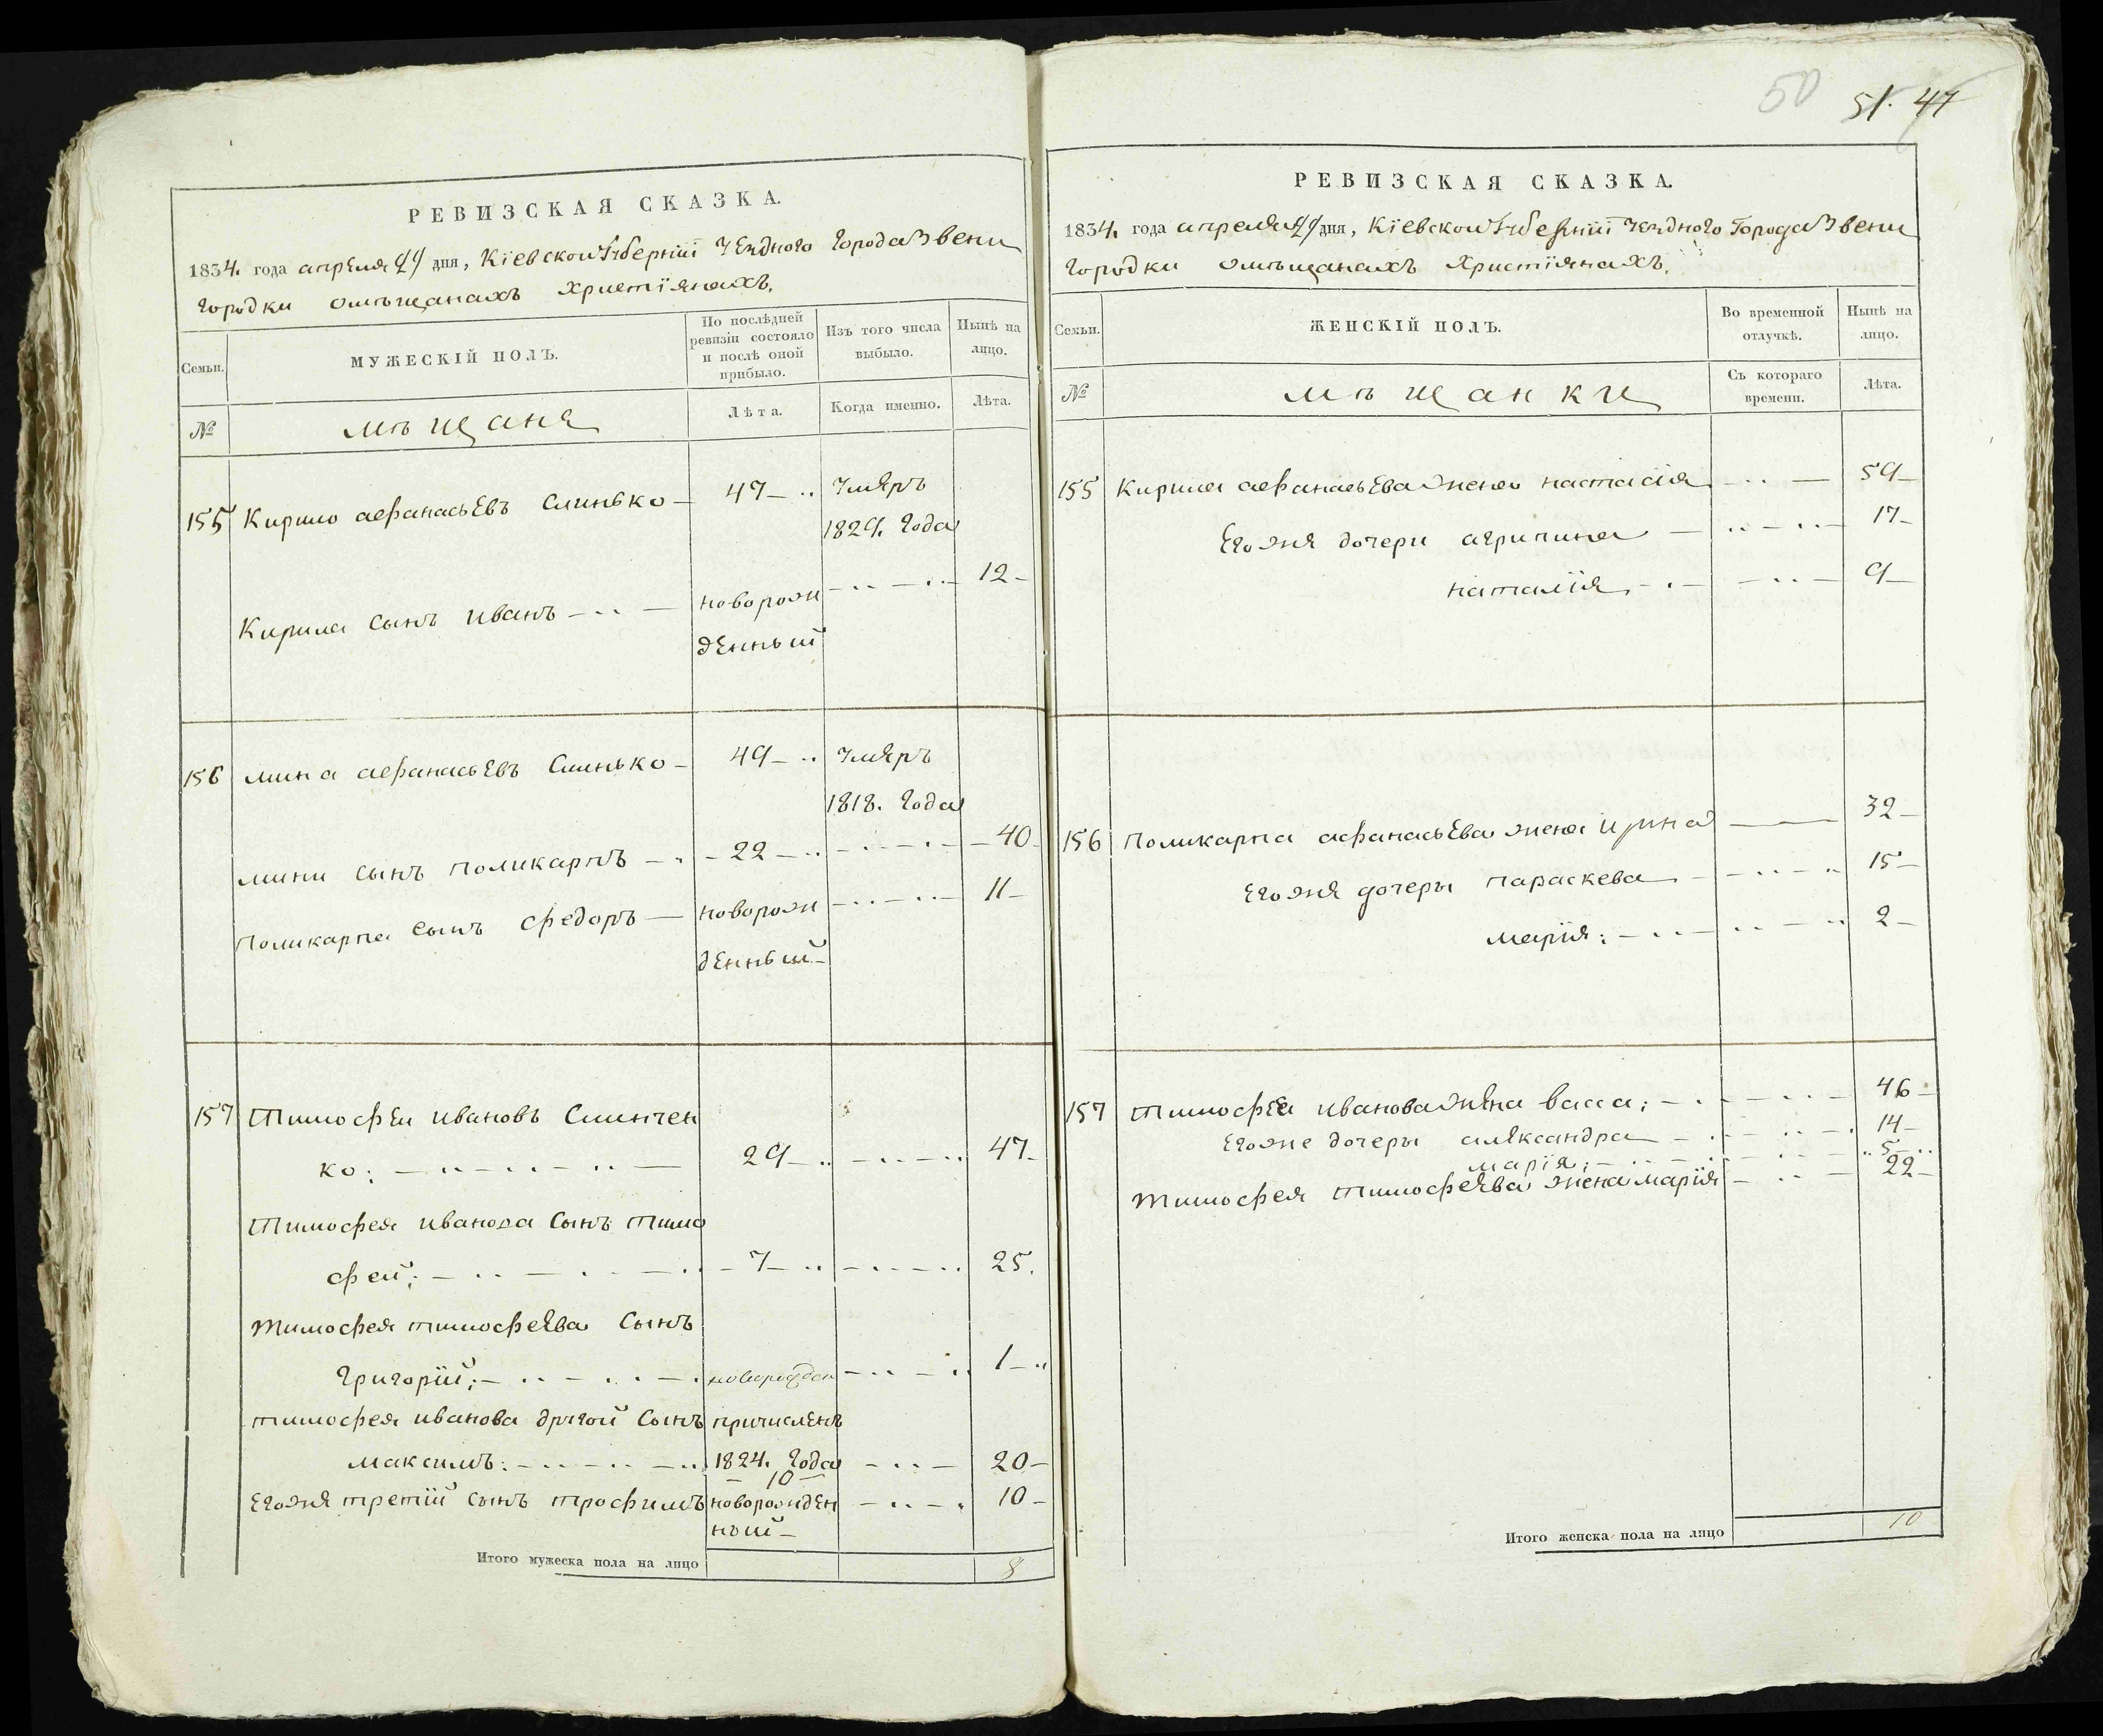 50 51. 47
РЕВИЗСКАЯ СКАЗКА.
1834. года апреля дня, Кіевской Губерніи Уездного Города Звени
городки омѣщанахъ христіянахъ.
Семьи.
МУЖЕСКІЙ ПОЛЪ.
По послѣдней ревизіи состояло и послѣ оной прибыло.
Изъ того числа выбыло.
Нынѣ на лицо.
№
мѣщаня
Лѣта.
Когда именно.
Лѣта.
155 Кирило афанасьевъ Слинько — 47 — умяръ
1829. года
Кирила сынъ иванъ — новорож — 12 —
денный
156 мина афанасьевъ Слинько — 49 — умяръ
1818. года
мини сынъ поликарпъ — 22 — 40 —
поликарпа сынъ федоръ — новорож — 11 —
денный —
157 Тимофеи ивановъ Слинчен
ко; — 29 — 47 —
Тимофея иванова сынъ тимо
фей; — 7 — 25.
тимофея тимофеева сынъ
григорій; — новорожден — 1 —
тимофея иванова другой сынъ причисленъ
максимъ: — 1824. года — 20 —
10
егожя третій сынъ трофимъ новорожден — 10 —
ный —
Итого мужеска пола на лицо 8
РЕВИЗСКАЯ СКАЗКА.
1834. года апреля дня, Кіевской Губерніи Уездного Города Звени
городки омѣщанахъ христіянахъ.
Семьи.
ЖЕНСКІЙ ПОЛЪ.
Во временной отлучкѣ.
Нынѣ на лицо.
№
мѣщанки
Съ котораго времени.
Лѣта.
155 Кирила афанасьева жена настасія — 59 —
Егожя дочери агрипина — 17 —
наталія, — 9 —
156 поликарпа афанасьева жена ирина — 32 —
Егожя дочеры параскева — 15 —
марія: — 2 —
157 тимофеа иванова жена васа; — 46 —
Егоже дочеры александра — 14 —
марія; — 5 —
тимофея тимофеева жена марія — 22 —
Итого женска пола на лицо 10